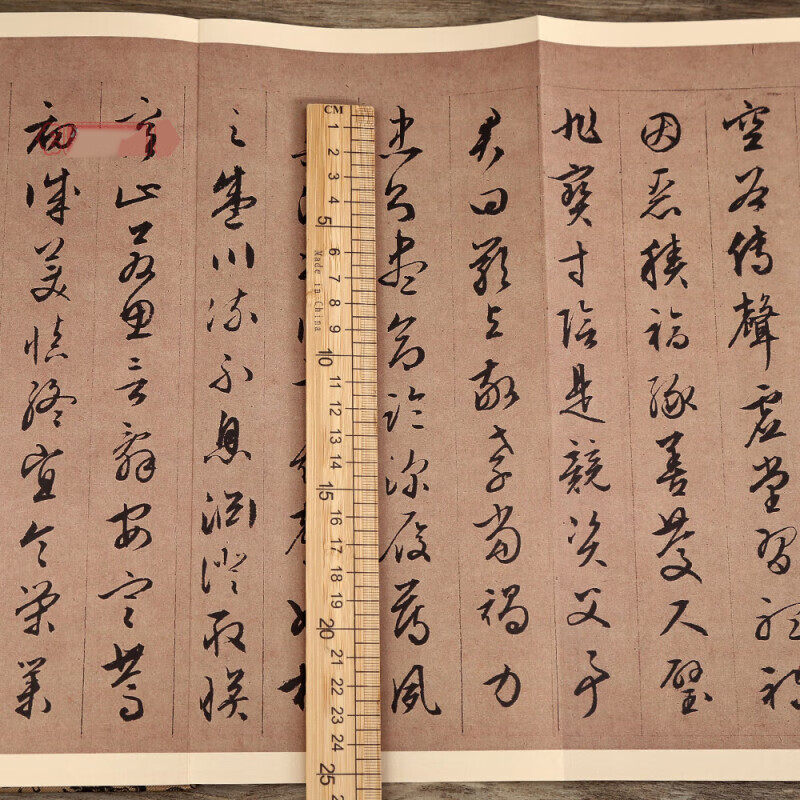 空谷傳聲虛堂習聽禍
因惡積福緣善慶尺璧
非寶寸陰是競資父事
君曰嚴與敬孝當竭力
忠則盡命臨深履薄夙
之盛川流不息淵澄取暎
容止若思言辭安定篤
初誠美慎終宜令榮業
CM
1 2 3 4 5 6 7 8 9 10 11 12 13 14 15 16 17 18 19 20 21 22 23 24 25
Made in China